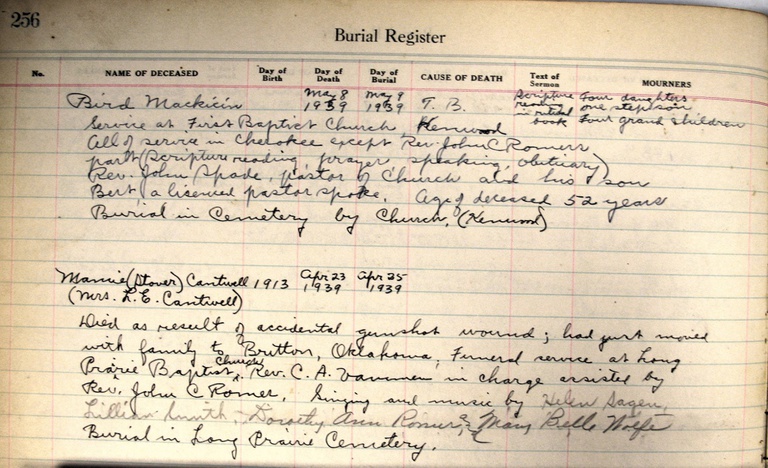 256
Burial Register
No. NAME OF DECEASED Day of Birth Day of Death Day of Burial CAUSE OF DEATH Text of Sermon MOURNERS
Bird Mackicin May 8 1939 May 9 1939 T. B. Scripture in ritual book Four daughters one stepson Four grand children
Service at First Baptist Church, Kenwood
All of service in Cherokee except Rev. John C Romer
part (scripture reading, prayer speaking, obituary)
Rev. John Spade, pastor of Church and his son
Bert, a licensed pastor spoke. Age of deceased 52 years
Burial in Cemetery by Church. (Kenwood)
Mamie (Stover) Cantwell 1913 Apr 23 1939 Apr 25 1939
(Mrs. L. E. Cantwell)
Died as result of accidental gunshot wound; had just moved
with family to Britton, Oklahoma, Funeral service at Long
Prairie Baptist Church, Rev. C. A. in charge assisted by
Rev. John C Romer, Singing and music by Helen Sagen,
Lillian Smith, Dorothy Ann Romer, & Mary Belle Wolfe
Burial in Long Prairie Cemetery.